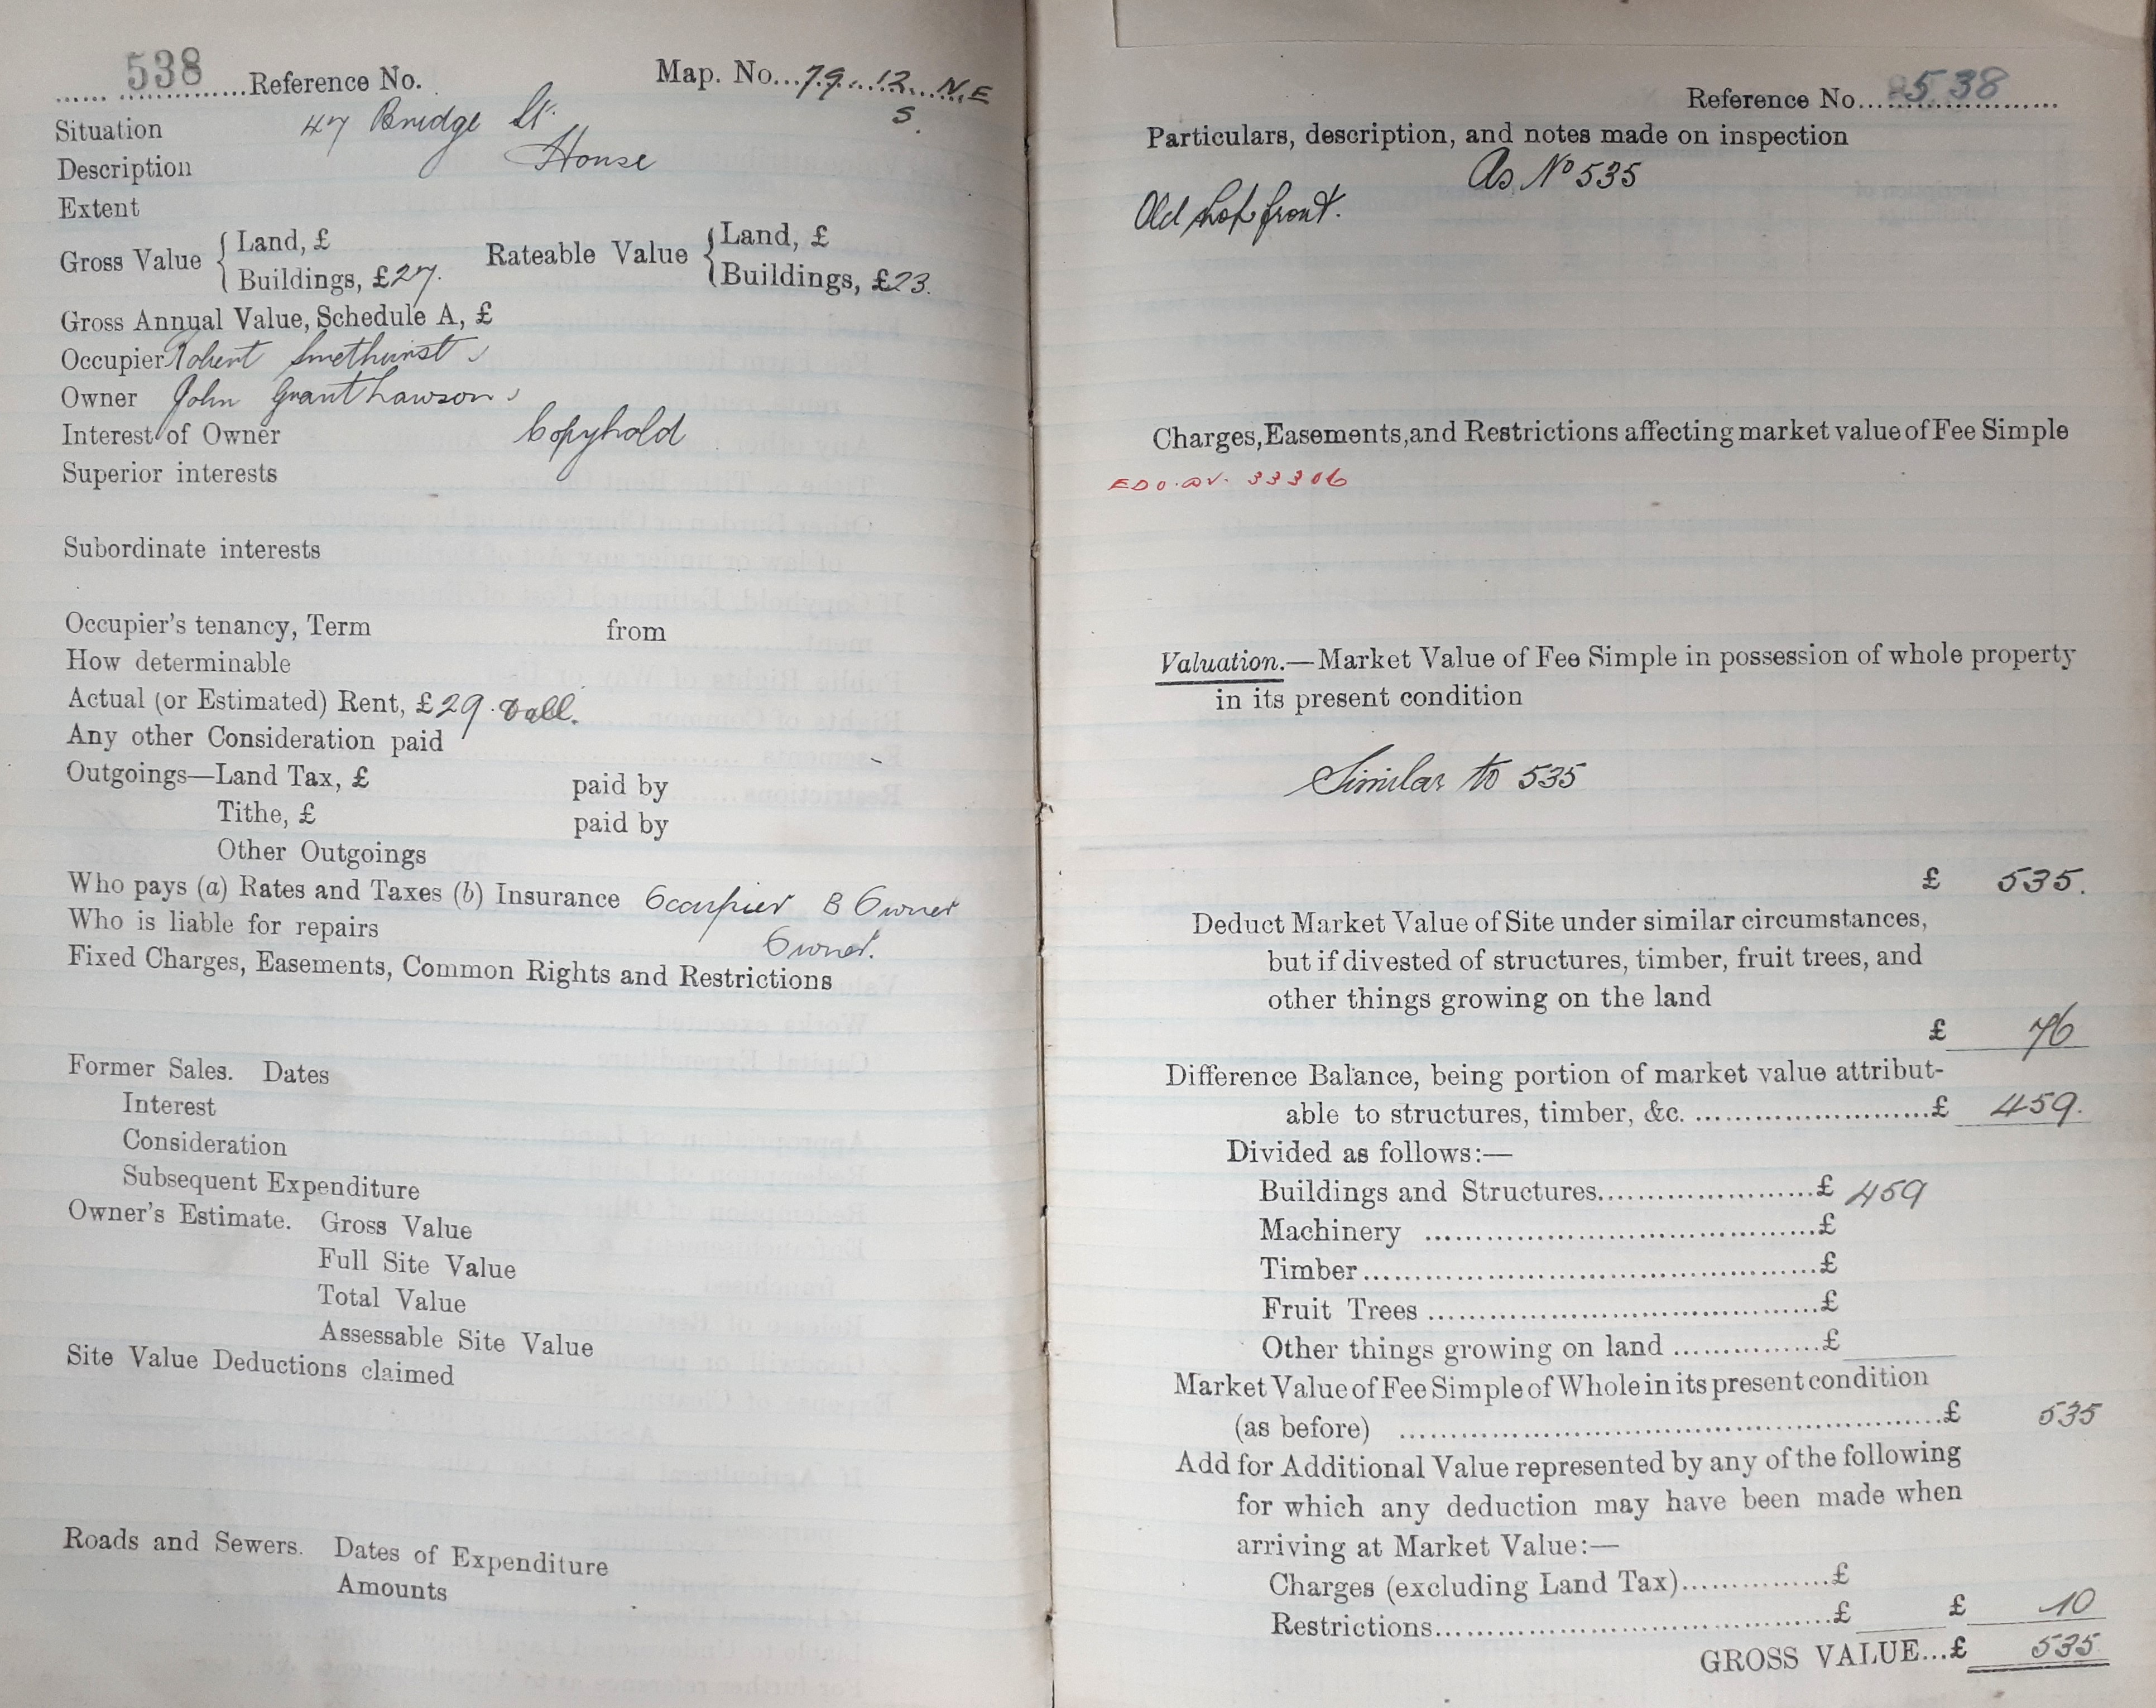 538 Reference No. Map. No...79...12...N.E
S.
Situation 47 Bridge St.
Description House
Extent
Gross Value { Land, £ Rateable Value { Land, £
Buildings, £27. Buildings, £23.
Gross Annual Value, Schedule A, £
Occupier Robert Smethurst
Owner John Grant Lawson
Interest of Owner Copyhold
Superior interests
Subordinate interests
Occupier's tenancy, Term from
How determinable
Actual (or Estimated) Rent, £29.
Any other Consideration paid
Outgoings—Land Tax, £ paid by
Tithe, £ paid by
Other Outgoings
Who pays (a) Rates and Taxes (b) Insurance Occupier B Owner
Who is liable for repairs Owner.
Fixed Charges, Easements, Common Rights and Restrictions
Former Sales. Dates
Interest
Consideration
Subsequent Expenditure
Owner's Estimate. Gross Value
Full Site Value
Total Value
Assessable Site Value
Site Value Deductions claimed
Roads and Sewers. Dates of Expenditure
Amounts
Reference No....538
Particulars, description, and notes made on inspection
As No 535
Old shop front.
Charges, Easements, and Restrictions affecting market value of Fee Simple
33306
Valuation.—Market Value of Fee Simple in possession of whole property
in its present condition
Similar to 535
£ 535.
Deduct Market Value of Site under similar circumstances,
but if divested of structures, timber, fruit trees, and
other things growing on the land
£ 76
Difference Balance, being portion of market value attribut-
able to structures, timber, &c. ........................£ 459.
Divided as follows:—
Buildings and Structures.......................£ 459
Machinery ..........................................£
Timber................................................£
Fruit Trees .........................................£
Other things growing on land ...............£
Market Value of Fee Simple of Whole in its present condition
(as before) ..........................................................£ 535
Add for Additional Value represented by any of the following
for which any deduction may have been made when
arriving at Market Value:—
Charges (excluding Land Tax)................£
Restrictions..........................................£ £ 10
GROSS VALUE...£ 535